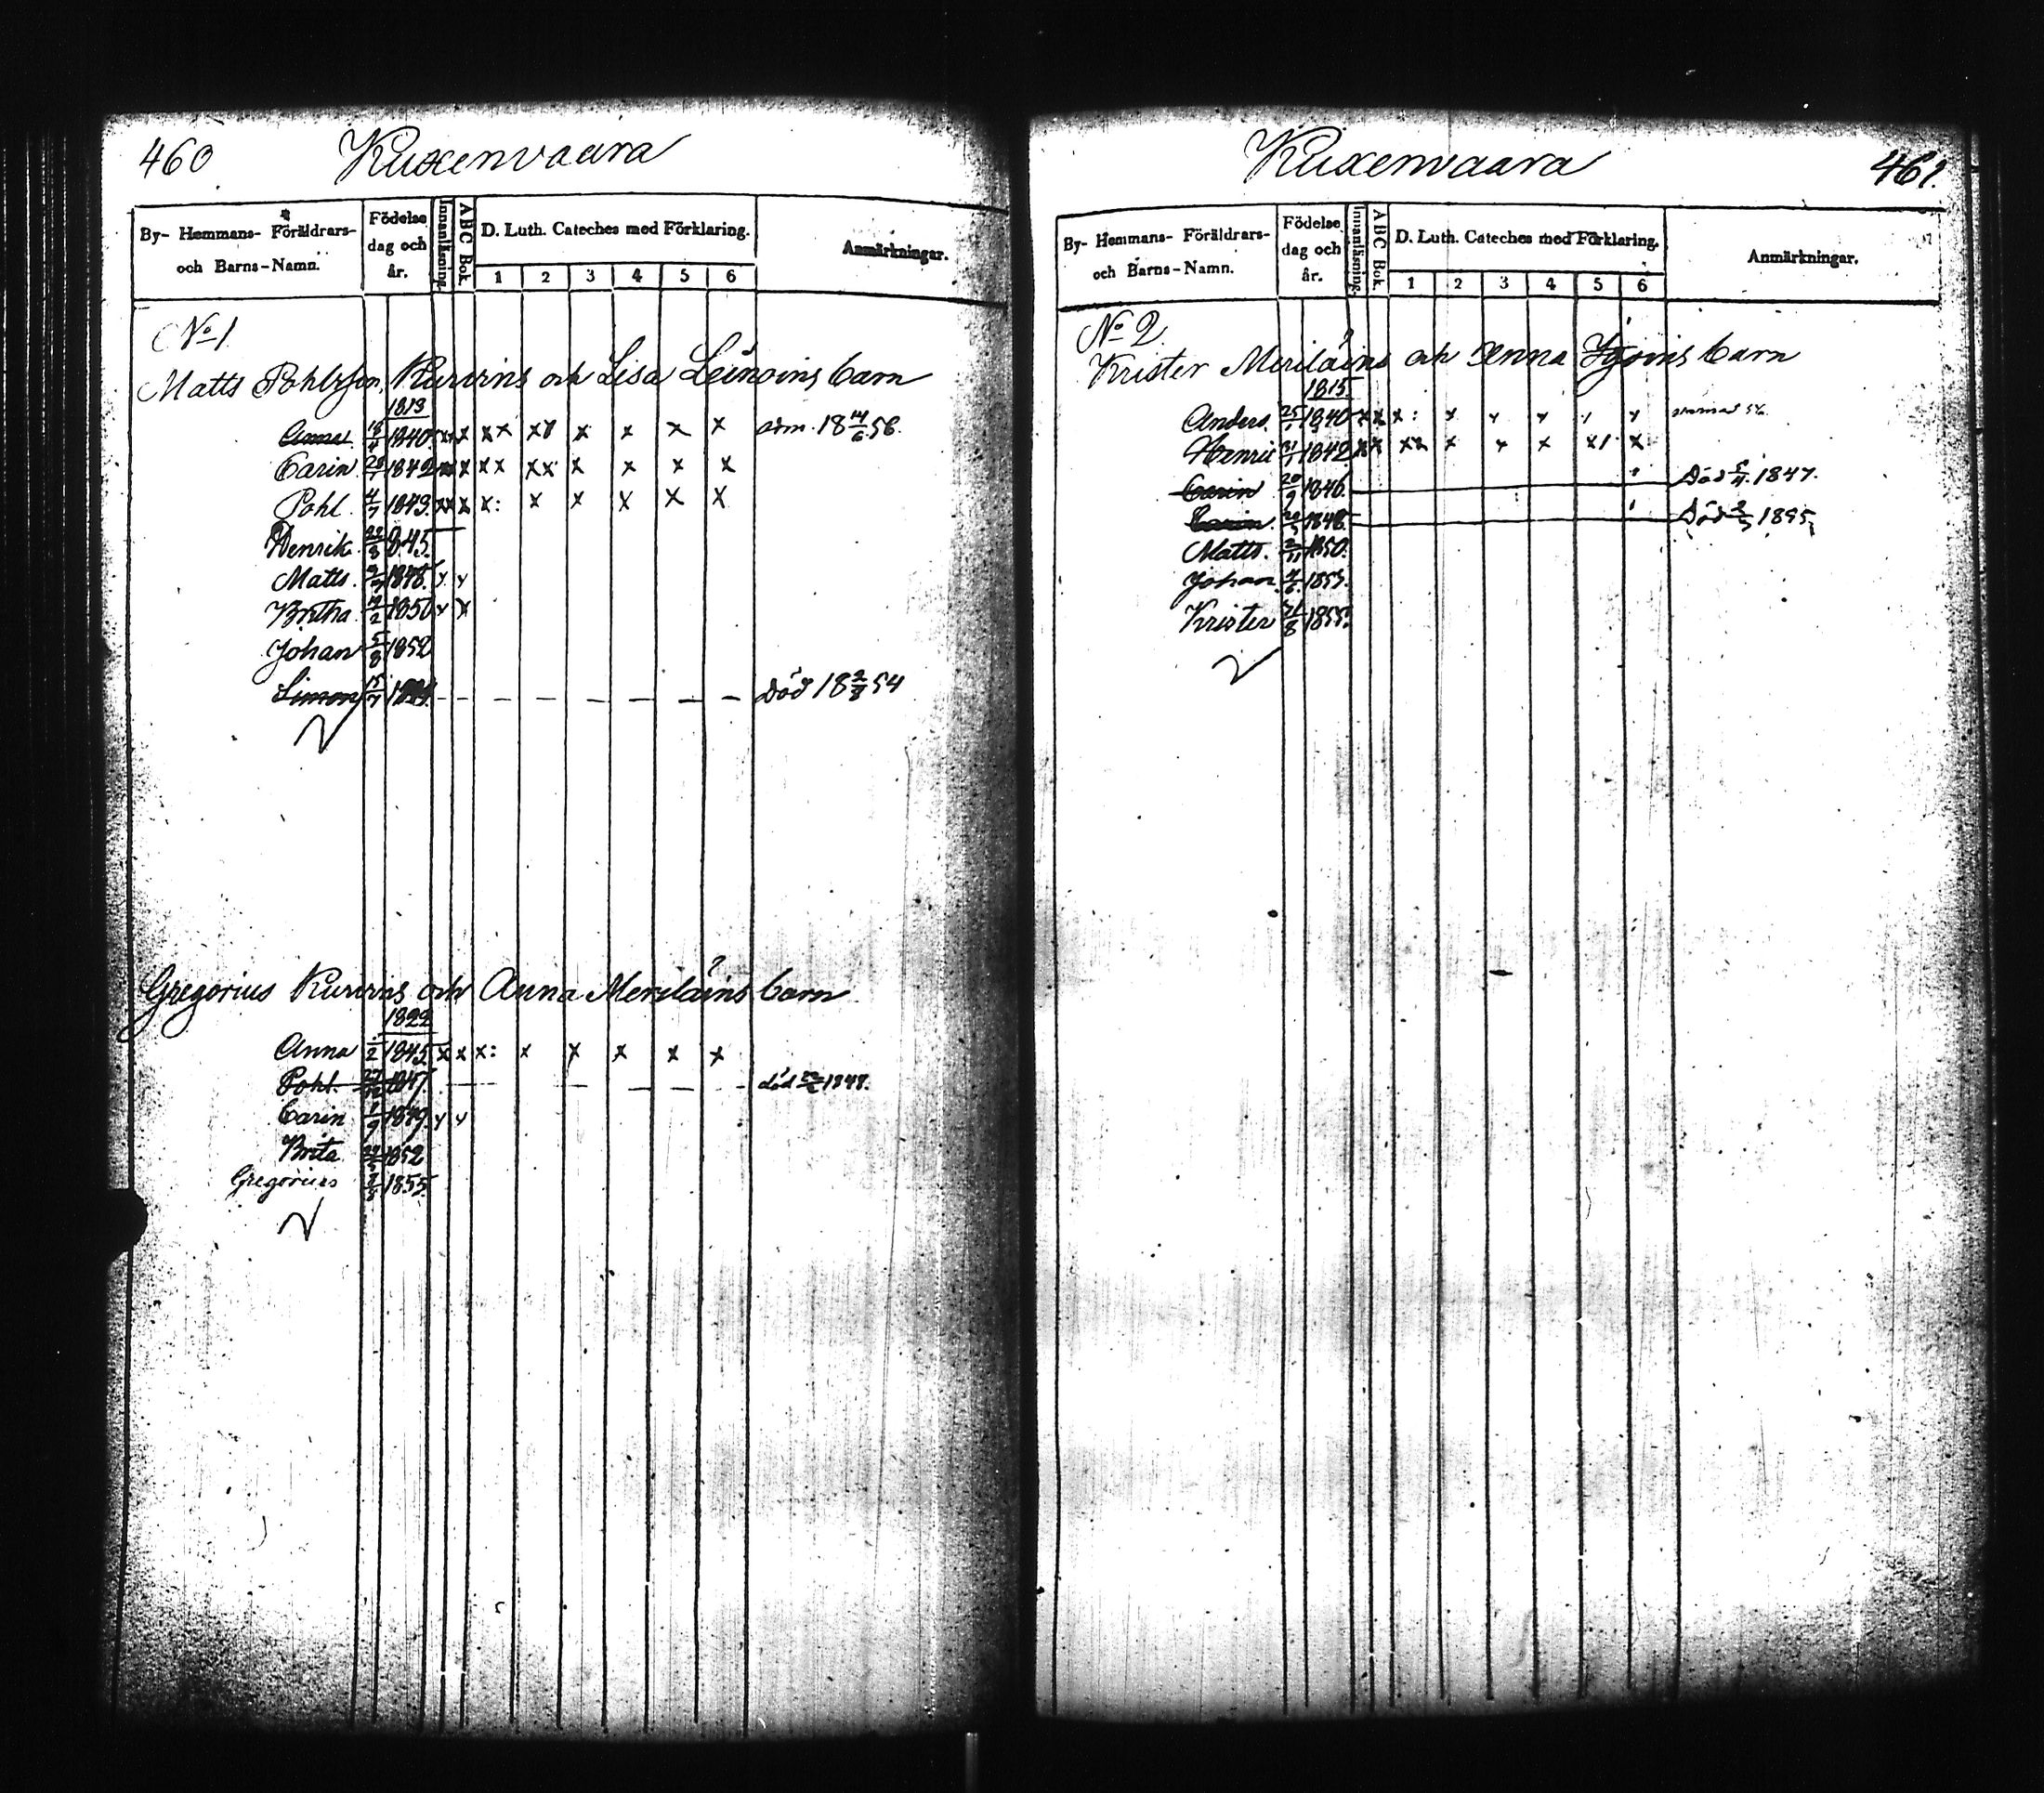 460 Kuxenvaara
By- Hemmans- Föräldrars- och Barns-Namn. Födelse dag och år. Innanläsning. ABC Bok. D. Luth. Cateches med Förklaring. 1 2 3 4 5 6 Anmärkningar.
No 1
Matts Pohlsson Kurvins och Lisa Leinoins barn
1813
Anna 18/4 1840 x x xx x x x x x adm. 18 14/6 56.
Carin 1842 x x x x x x x x x
Pohl 4/7 1843. xx x x: x x x x x
Henrik 22/8 845.
Matts. 1848. x x
Britha 1850 x x
Johan 5/8 1852
Simon 15/7 – – – – – – – död 18 2/8 54
Gregorius Kurvins och Anna Meriläins barn
1822
Anna /2 1845 x x x: x x x x x
Pohl 1847. – – – – – – död 1848.
Carin 1/9 1849. x x
Brita 1852
Gregorius 1855.
Kuxenvaara 461.
By- Hemmans- Föräldrars- och Barns-Namn. Födelse dag och år. Innanläsning. ABC Bok. D. Luth. Cateches med Förklaring. 1 2 3 4 5 6 Anmärkningar.
No 2
Krister Meriläins och Anna barn
1815.
Anders. 25/ 1840 x x x: x x x x x 56.
Henric 31/1 1842 x x xx x x x x1 x
Carin 20/9 1846. Död 1847.
Carin 1848. Död
Matts. 2/11 1850.
Johan 1853.
Krister 31/8 1855.